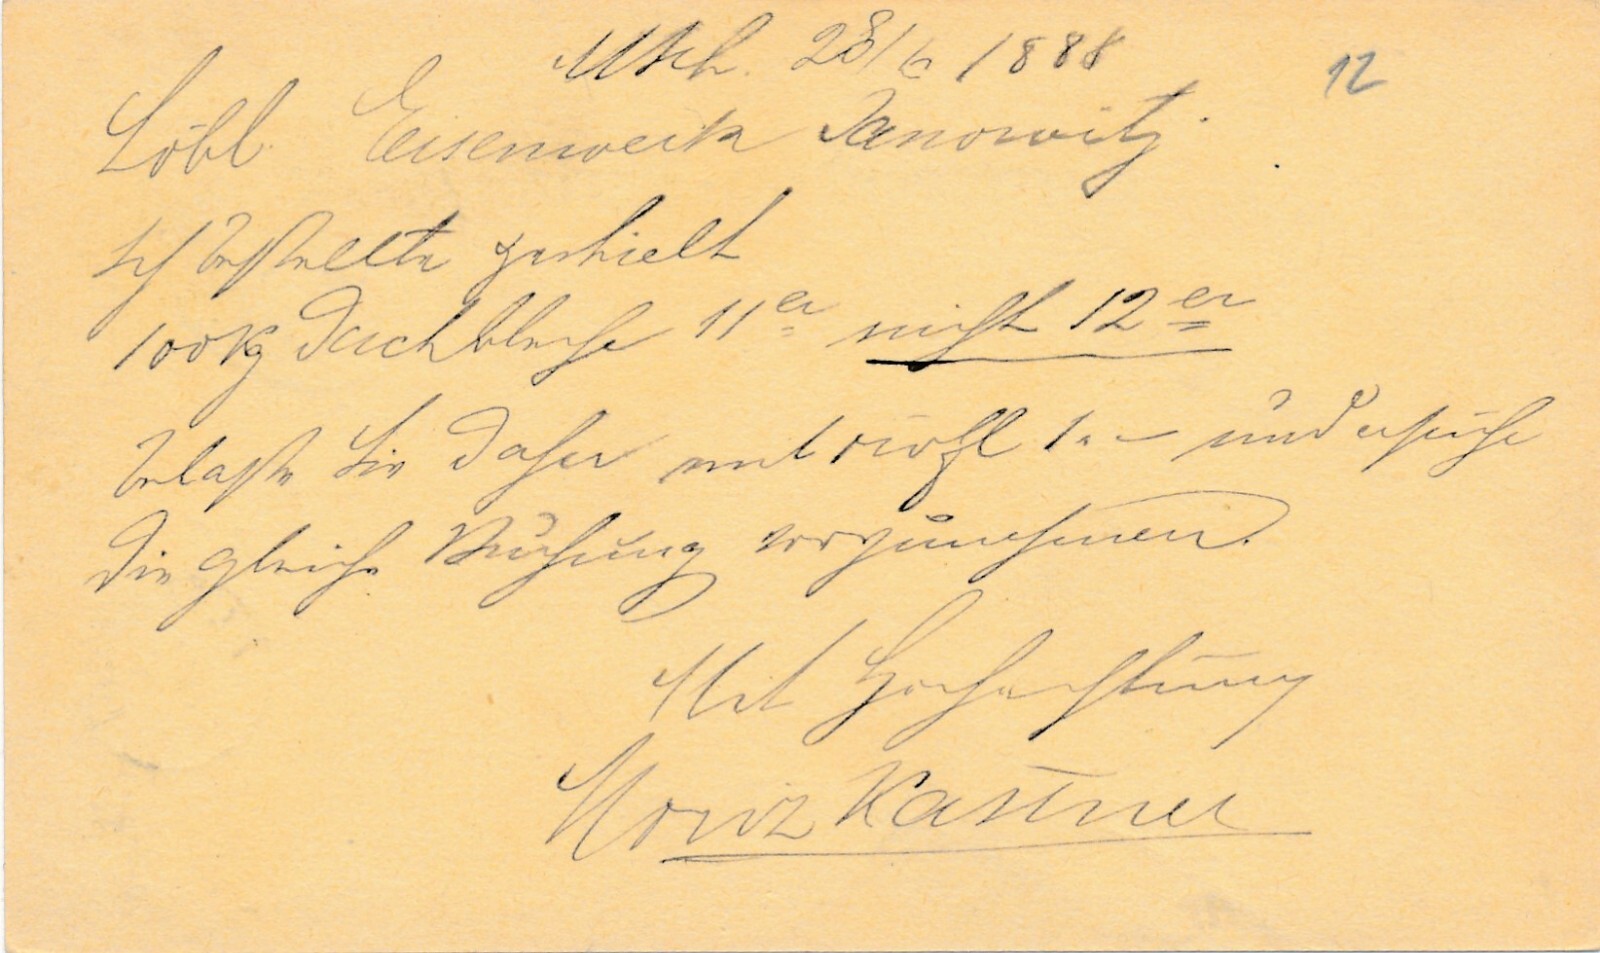 28/6 1888
12
Löbl. Eisenwerk Janowitz.
Ich bestellte & erhielt
100 Kg Dachbleche 11er nicht 12er
belaste Sie daher mit fl 1.– und ersuche
die gleiche Buchung vorzunehmen.
Mit Hochachtung
Moriz Kastner